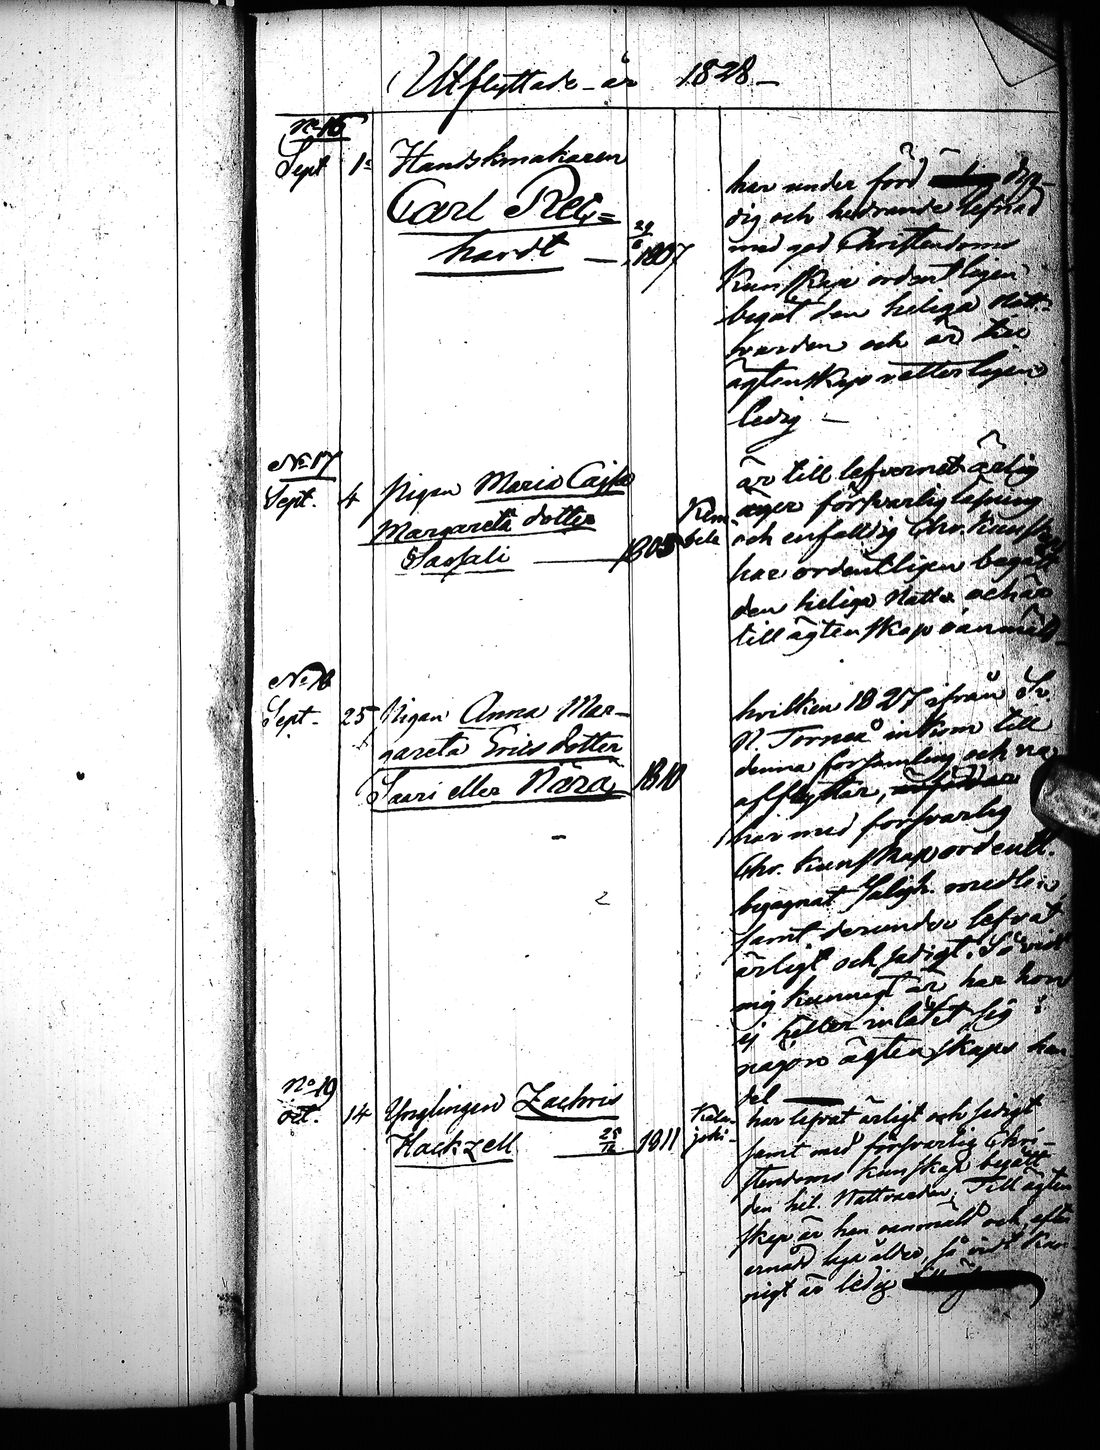 Utflyttade år 1828 –
No 16
Sept 1
Handskmakaren
Carl Rei=
hardt — 1807
har under förd dyg=
dig och hedrande lefnad
med god Christendoms
Kunskap ordentligen
begåt den heliga Natt=
varden och är till
ägtenskap vetterligen
ledig –
No 17
Sept. 4
Pigan Maria Cajsa
Margareta dotter
1805
är till lefvernet ärlig
äger försvarlig läsning
och enfaldig Chr. Kunsk
har ordentligen begått
den heliga Nattv. och är
till ägtenskap oanmäld
No 18
Sept. 25
Pigan Anna Mar-
gareta Ersdotter
Saari eller Nära 1810
hvilken 1827 ifrån
N. Torneå inkom till
denna församling och nu
afflyttar,
har med försvarlig
Chr. Kunskap ordentl.
begagnat Saligh. medlen
samt derunder lefvat
ärligt och sedigt. Så vidt
mig kunnigt är har hon
ej heller inlåtit sig i
någon ägtenskaps han
del —
No 19
Oct. 14
Ynglingen Zachris
Hackzell 25/12 1811
Kala
joki
har lefvat ärligt och sedigt
samt med försvarlig Chri-
stendoms kunskap begått
den hel. Nattvarden. Till ägten
skap är han oanmäld och, efter
ernådd laga ålder, så vidt kun
nigt är ledig